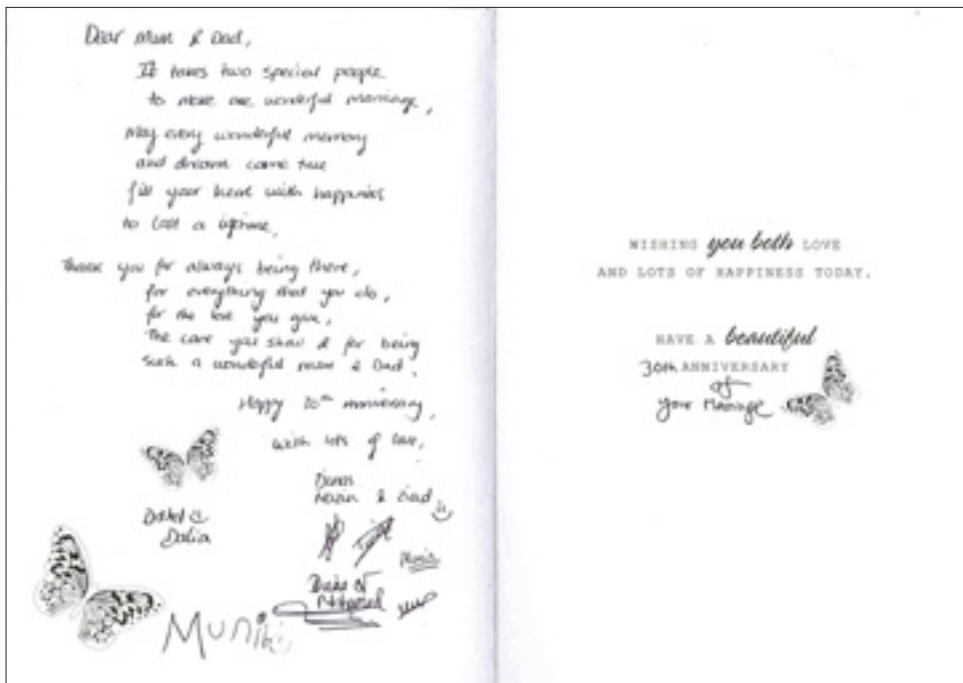 Dear Mum & Dad,
It takes two special people
to make one wonderful marriage,
May every wonderful memory
and dream come true
fill your heart with happiness
to last a lifetime,
Thank you for always being there,
for everything that you do,
for the love you give,
The care you show & for being
such a wonderful mum & Dad.
Happy 30th Anniversary,
with lots of love,
&
Dalia
Munib
WISHING you both LOVE
AND LOTS OF HAPPINESS TODAY.
HAVE A beautiful
30th ANNIVERSARY
of
your Marriage